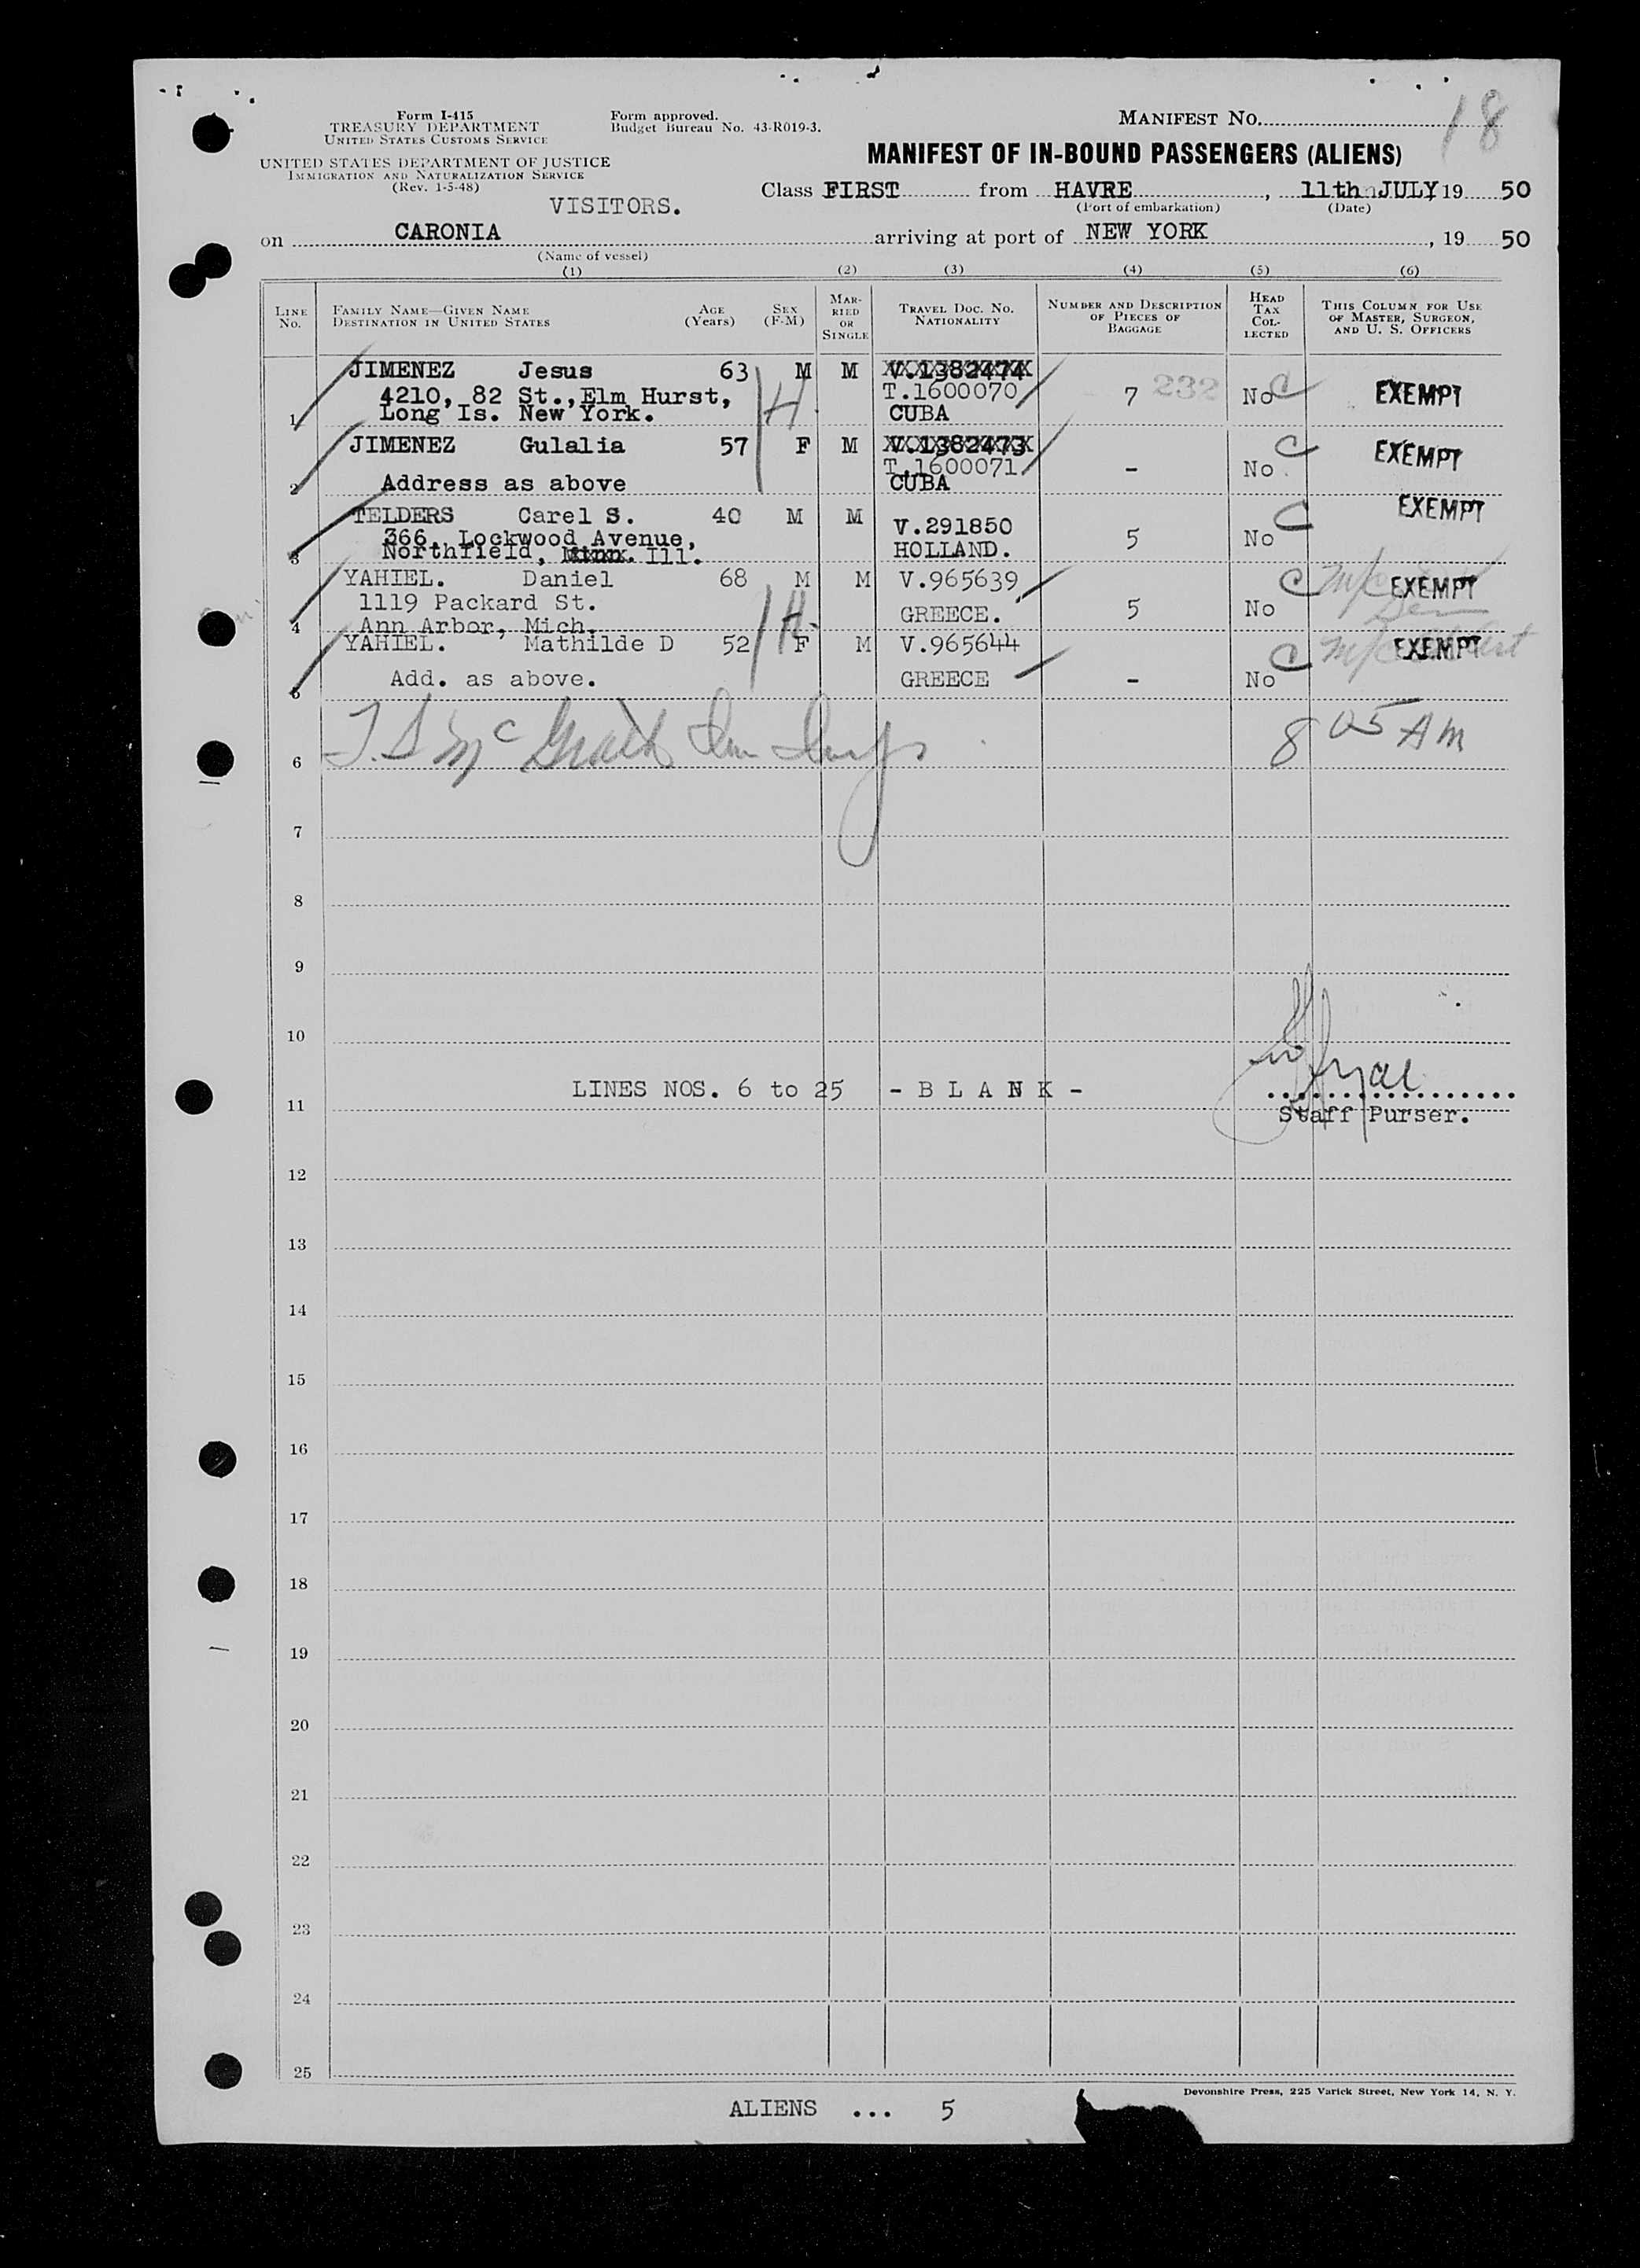 Form I-415
TREASURY DEPARTMENT
UNITED STATES CUSTOMS SERVICE
UNITED STATES DEPARTMENT OF JUSTICE
IMMIGRATION AND NATURALIZATION SERVICE
(Rev. 1-5-48)
Form approved.
Budget Bureau No. 43-R019-3.
MANIFEST NO. 18
MANIFEST OF IN-BOUND PASSENGERS (ALIENS)
VISITORS.
Class FIRST from HAVRE, 11th JULY, 19 50
(Port of embarkation) (Date)
on CARONIA arriving at port of NEW YORK, 19 50
(Name of vessel)
(1) (2) (3) (4) (5) (6)
LINE NO.
FAMILY NAME—GIVEN NAME
DESTINATION IN UNITED STATES
AGE (Years)
SEX (F-M)
MARRIED OR SINGLE
TRAVEL DOC. NO.
NATIONALITY
NUMBER AND DESCRIPTION OF PIECES OF BAGGAGE
HEAD TAX COLLECTED
THIS COLUMN FOR USE OF MASTER, SURGEON, AND U. S. OFFICERS
JIMENEZ Jesus 63 M M V.1382474
4210, 82 St., Elm Hurst, T.1600070 7 232 No C EXEMPT
1 Long Is. New York. CUBA
H.
JIMENEZ Gulalia 57 F M V.1382473 C EXEMPT
T.1600071 - No.
2 Address as above CUBA
TELDERS Carel S. 40 M M V.291850 C EXEMPT
366, Lockwood Avenue, 5 No
3 Northfield, Minn. Ill. HOLLAND.
YAHIEL. Daniel 68 M M V.965639 C EXEMPT
1119 Packard St. GREECE. 5 No
4 Ann Arbor, Mich.
H.
YAHIEL. Mathilde D 52 F M V.965644 C EXEMPT
5 Add. as above. GREECE - No
6 8 05 AM
7
8
9
10
11 LINES NOS. 6 to 25 - B L A N K -
Staff Purser.
12
13
14
15
16
17
18
19
20
21
22
23
24
25
Devonshire Press, 225 Varick Street, New York 14, N. Y.
ALIENS ... 5